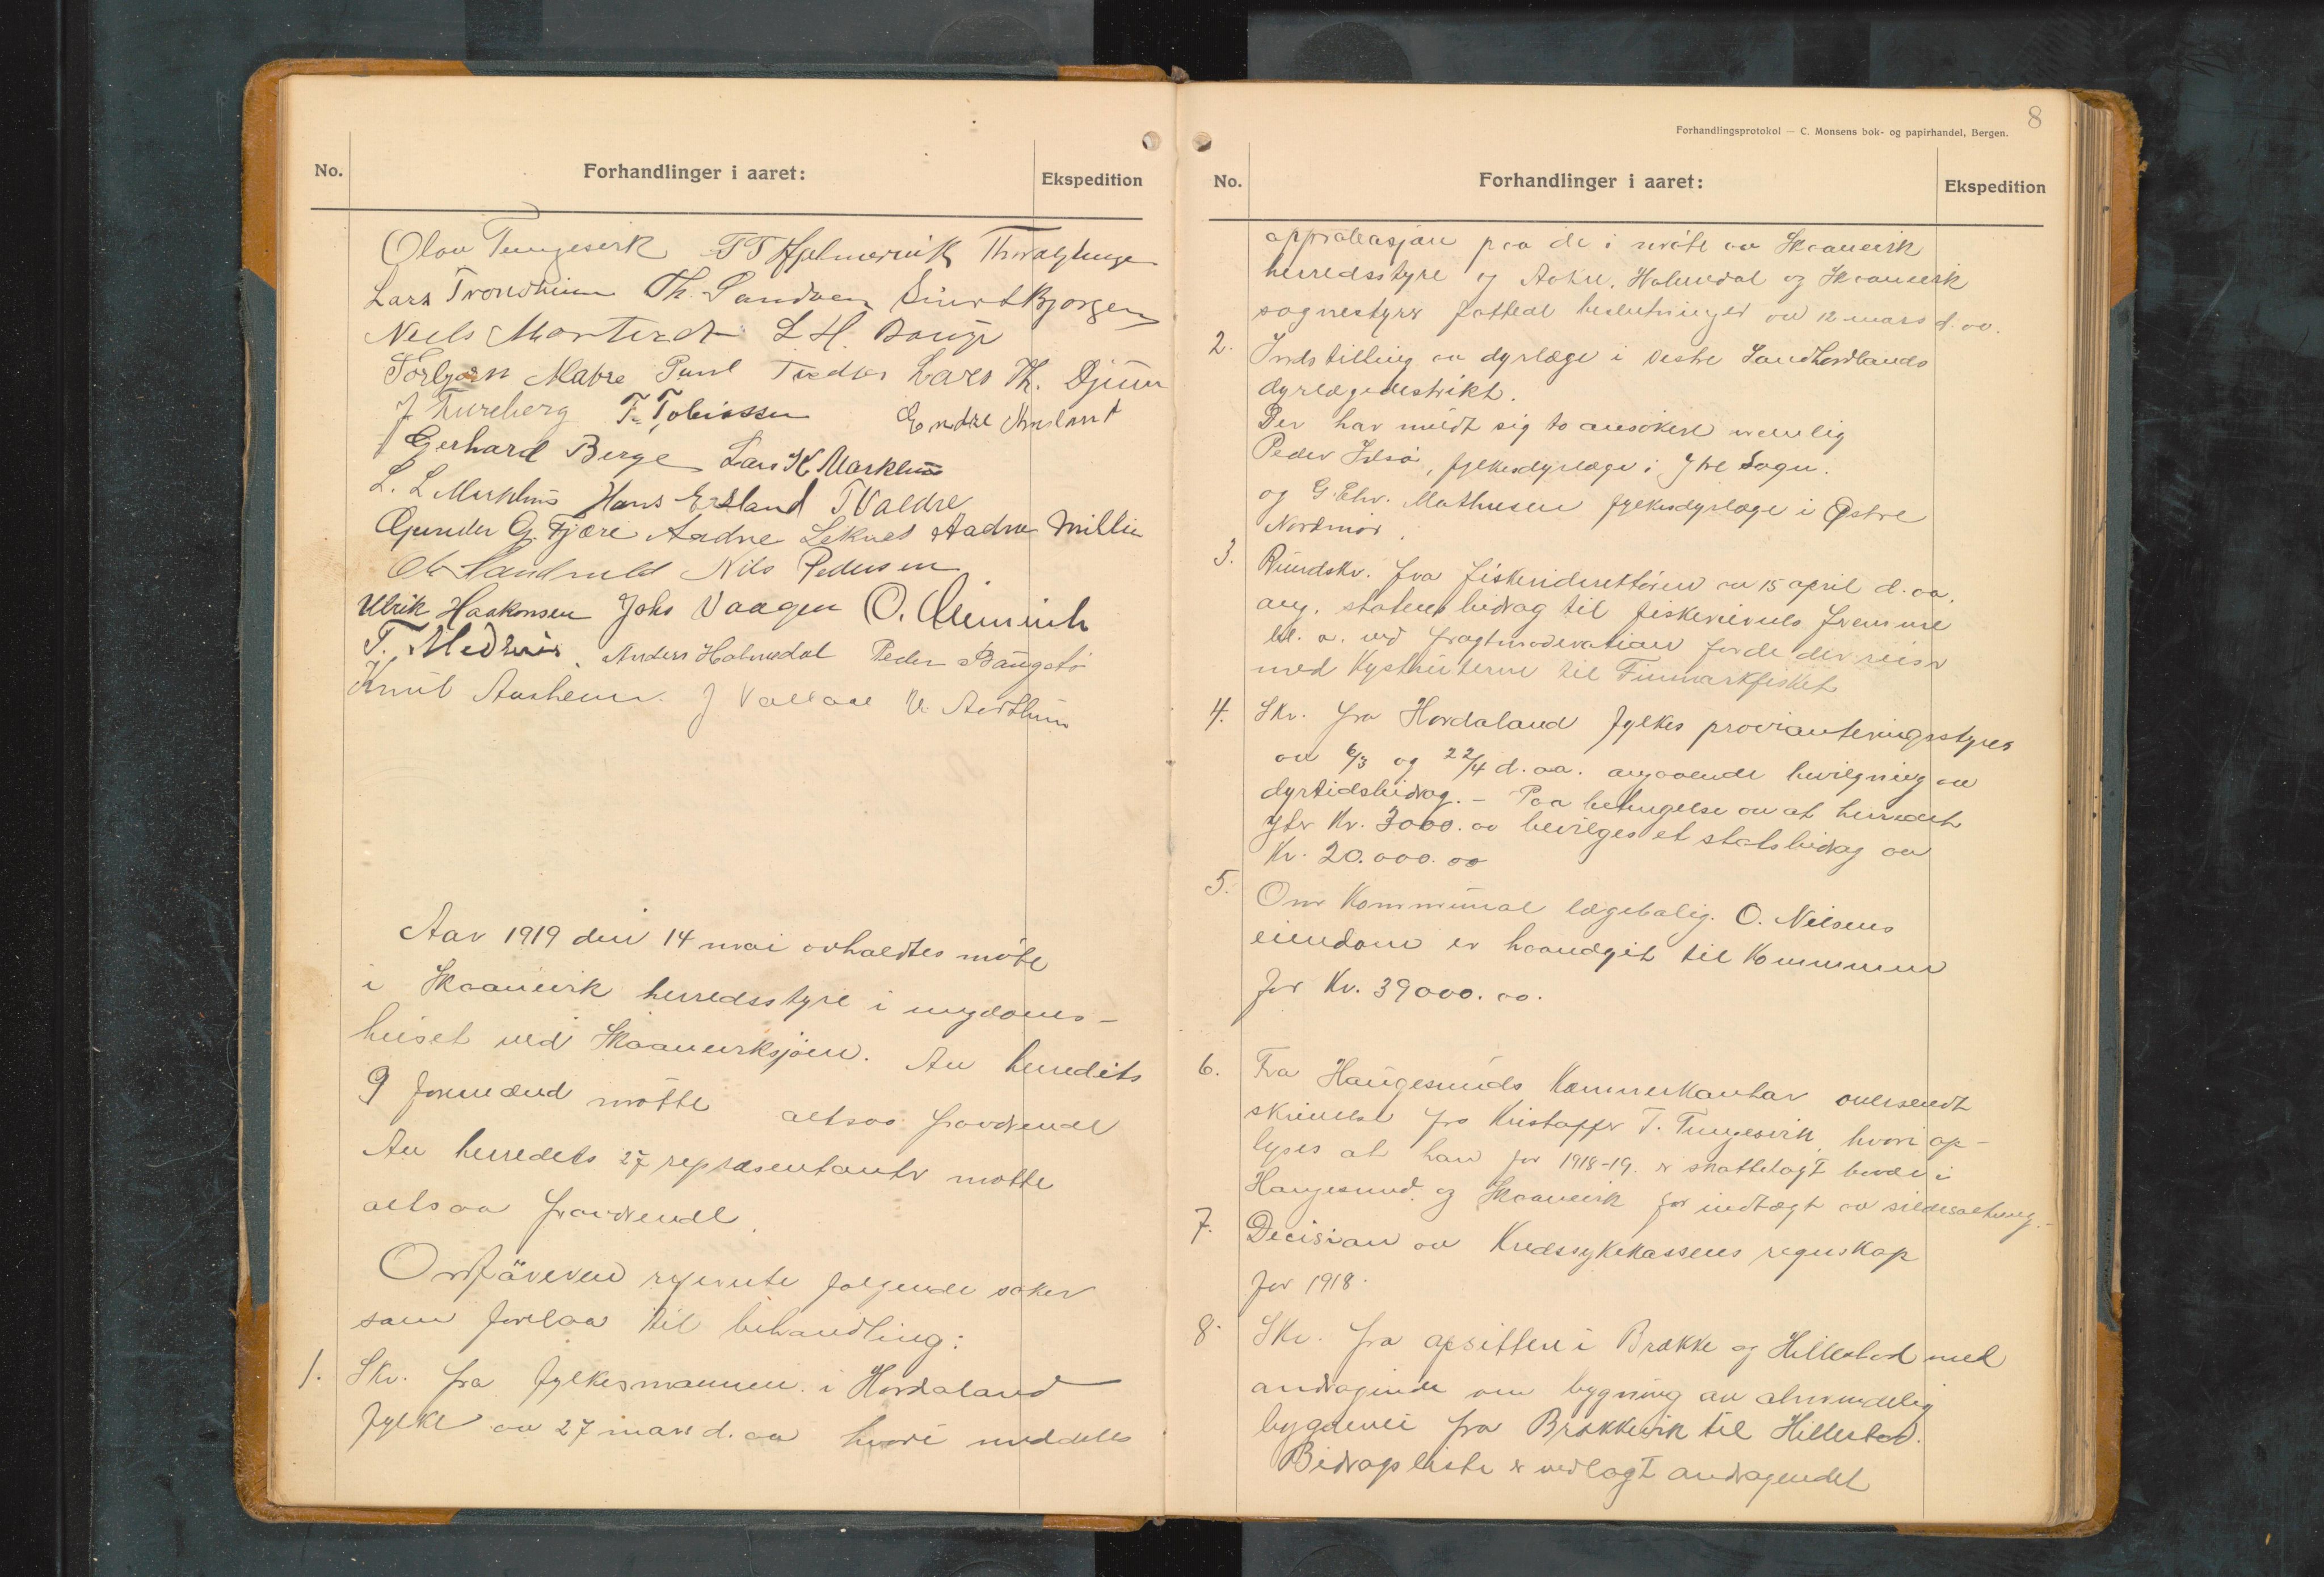 No.
Forhandlinger i aaret:
Ekspedition
Olav Tungesvik T T Hjelmervik
Lars Trondheim Th. Sandven Sivert Bjorgen
Niels L. H. Bauge
Torbjørn Matre Paul Tvedten Lars Th. Djuve
J Fureberg T. Tobiassen Endre
Gerhard Berge Lars K Markhus
L. L Markhus Hans Ersland T Valdre
Gunder G. Fjære Aadne Leknes Aadne Millie
Ole Sandvold Nils Pedersen
Ulrik Haakonsen Johs Vaagen O.
T. Medhus Anders Holmedal Peder Baugstø
Knut Austheim J Vallaae
Aar 1919 den 14 mai avholdtes møte
i Skaanevik herredsstyre i ungdoms-
huset ved Skaaneviksjøen. Av herredets
9 formænd møtte altsaa fraværende
Av herredets 27 repræsentanter møtte
altsaa fraværende.
Ordføreren referete følgende saker
som forelaa til behandling:
1. Skr. fra fylkesmannen i Hordaland
fylke av 27 mars d. aa hvori meddeles
8
Forhandlingsprotokol — C. Monsens bok- og papirhandel, Bergen.
No.
Forhandlinger i aaret:
Ekspedition
approbasjon paa de i møte av Skaanevik
herredsstyre og Aakre, Holmedal og Skaanevik
sognestyrer fattede beslutninger av 12 mars d. aa.
2. Indstilling av dyrlæge i vestre Søndhordlands
dyrlægedistrikt.
Der har meldt sig to ansøkere nemlig
Peder Idsø, fylkesdyrlæge i Ytre Sogn.
og G. Chr. Mathiesen fylkesdyrlæge i Østre
Nordmør.
3. Rundskr. fra fiskeridirektøren av 15 april d. aa.
ang. statens bidrag til fiskerienes fremme
bl. a. ved fragtmoderation for de der reiser
med Kystruterne til Finmarkfisket
4. Skr. fra Hordaland fylkes provianteringsstyres
av 6/3 og 22/4 d. aa. angaaende bevilgning av
dyrtidsbidrag. - Paa betingelse av at herredet
yter Kr. 3000.00 bevilges et statsbidrag av
Kr. 20.000.00
5. Om Kommunal lægebolig. O. Nilsens
eiendom er haandgit til Kommunen
for Kr. 39000.00.
6. Fra Haugesunds Kæmnerkontor oversendt
skrivelse fra Kristoffer T. Tungesvik, hvori op-
lyses at han for 1918-19. er skattelagt baade i
Haugesund og Skaanevik for indtægt av sildesaltning.-
7. Decision av Kredssykekassens regnskap
for 1918.
8. Skr. fra opsittere i Brække og Hillestad med
andragende om bygning av almindelig
bygdevei fra Brækkevik til Hillestad.
Bidragsliste er vedlagt andragendet